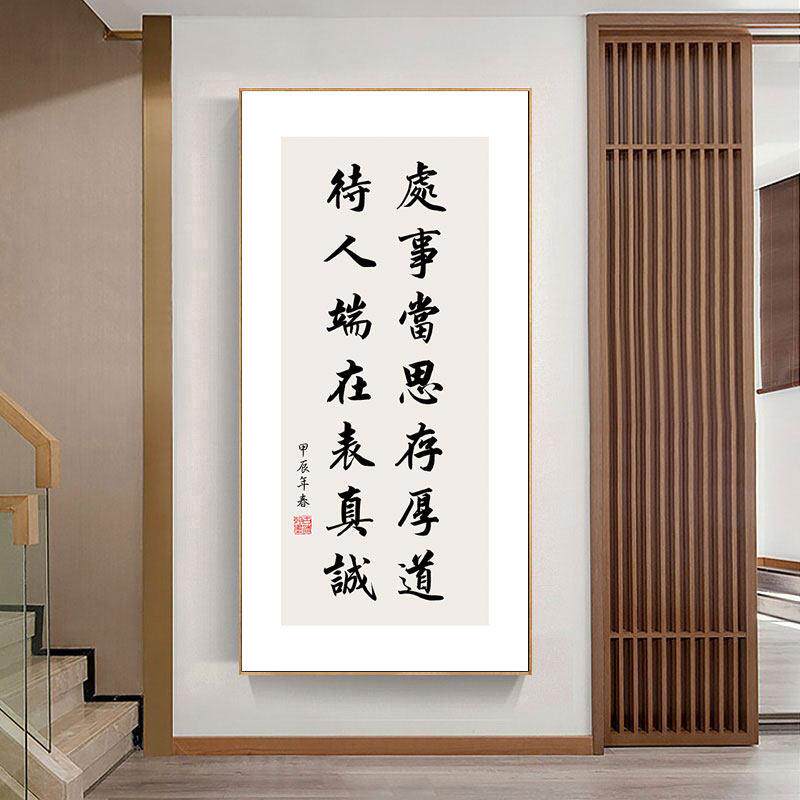 處事當思存厚道
待人端在表真誠
甲辰年春